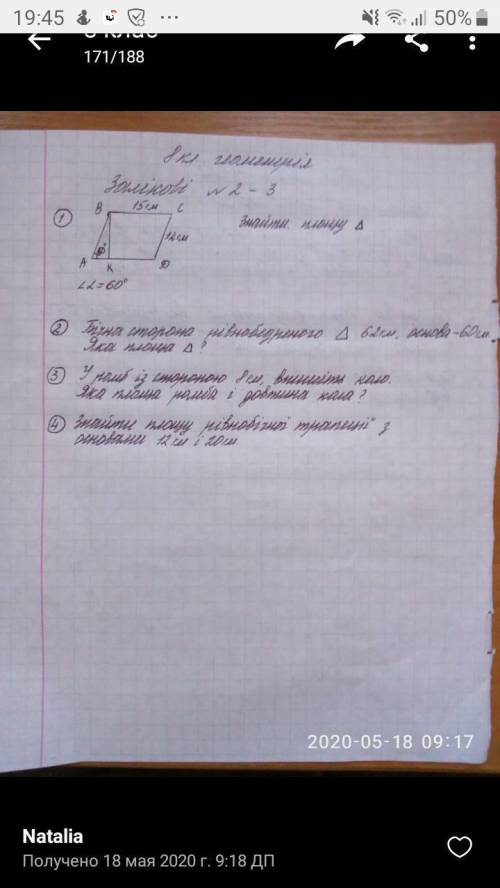 19:45
50%
8 клас
171/188
8 кл. геометрія
Залікові №2-3
① B 15см C Знайти площу △
12см
60°
A K D
∠α=60°
② Бічна сторона рівнобедреного △ 62см, основа-60см.
Яка площа △?
③ У ромб із стороною 8см, впишіть коло.
Яка площа ромба і довжина кола?
④ Знайти площу рівнобічної трапеції з
основами 12см і 20см
2020-05-18 09:17
Natalia
Получено 18 мая 2020 г. 9:18 ДП